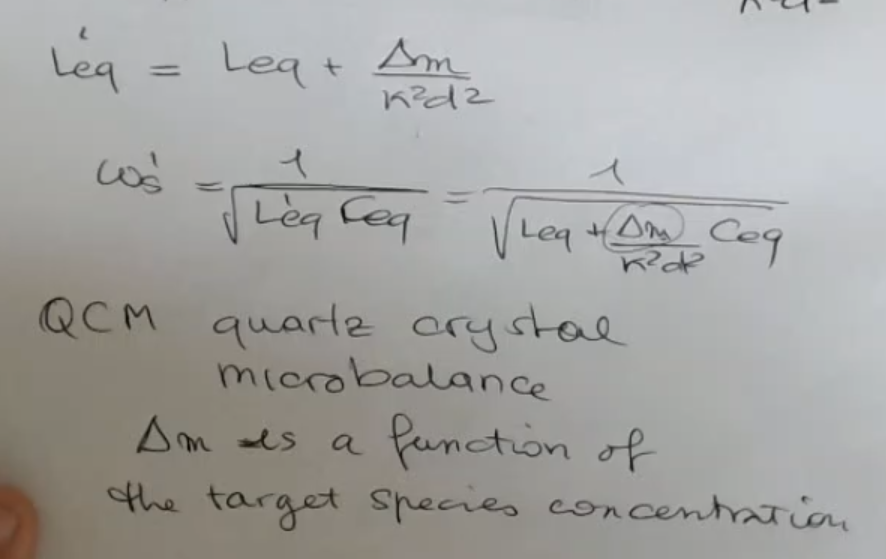 L'eq = Leq + Δm / k²d²
ωs' = 1 / √(L'eq Ceq) = 1 / √(Leq + Δm / k²d² Ceq)
QCM quartz crystal
microbalance
Δm is a function of
the target species concentration